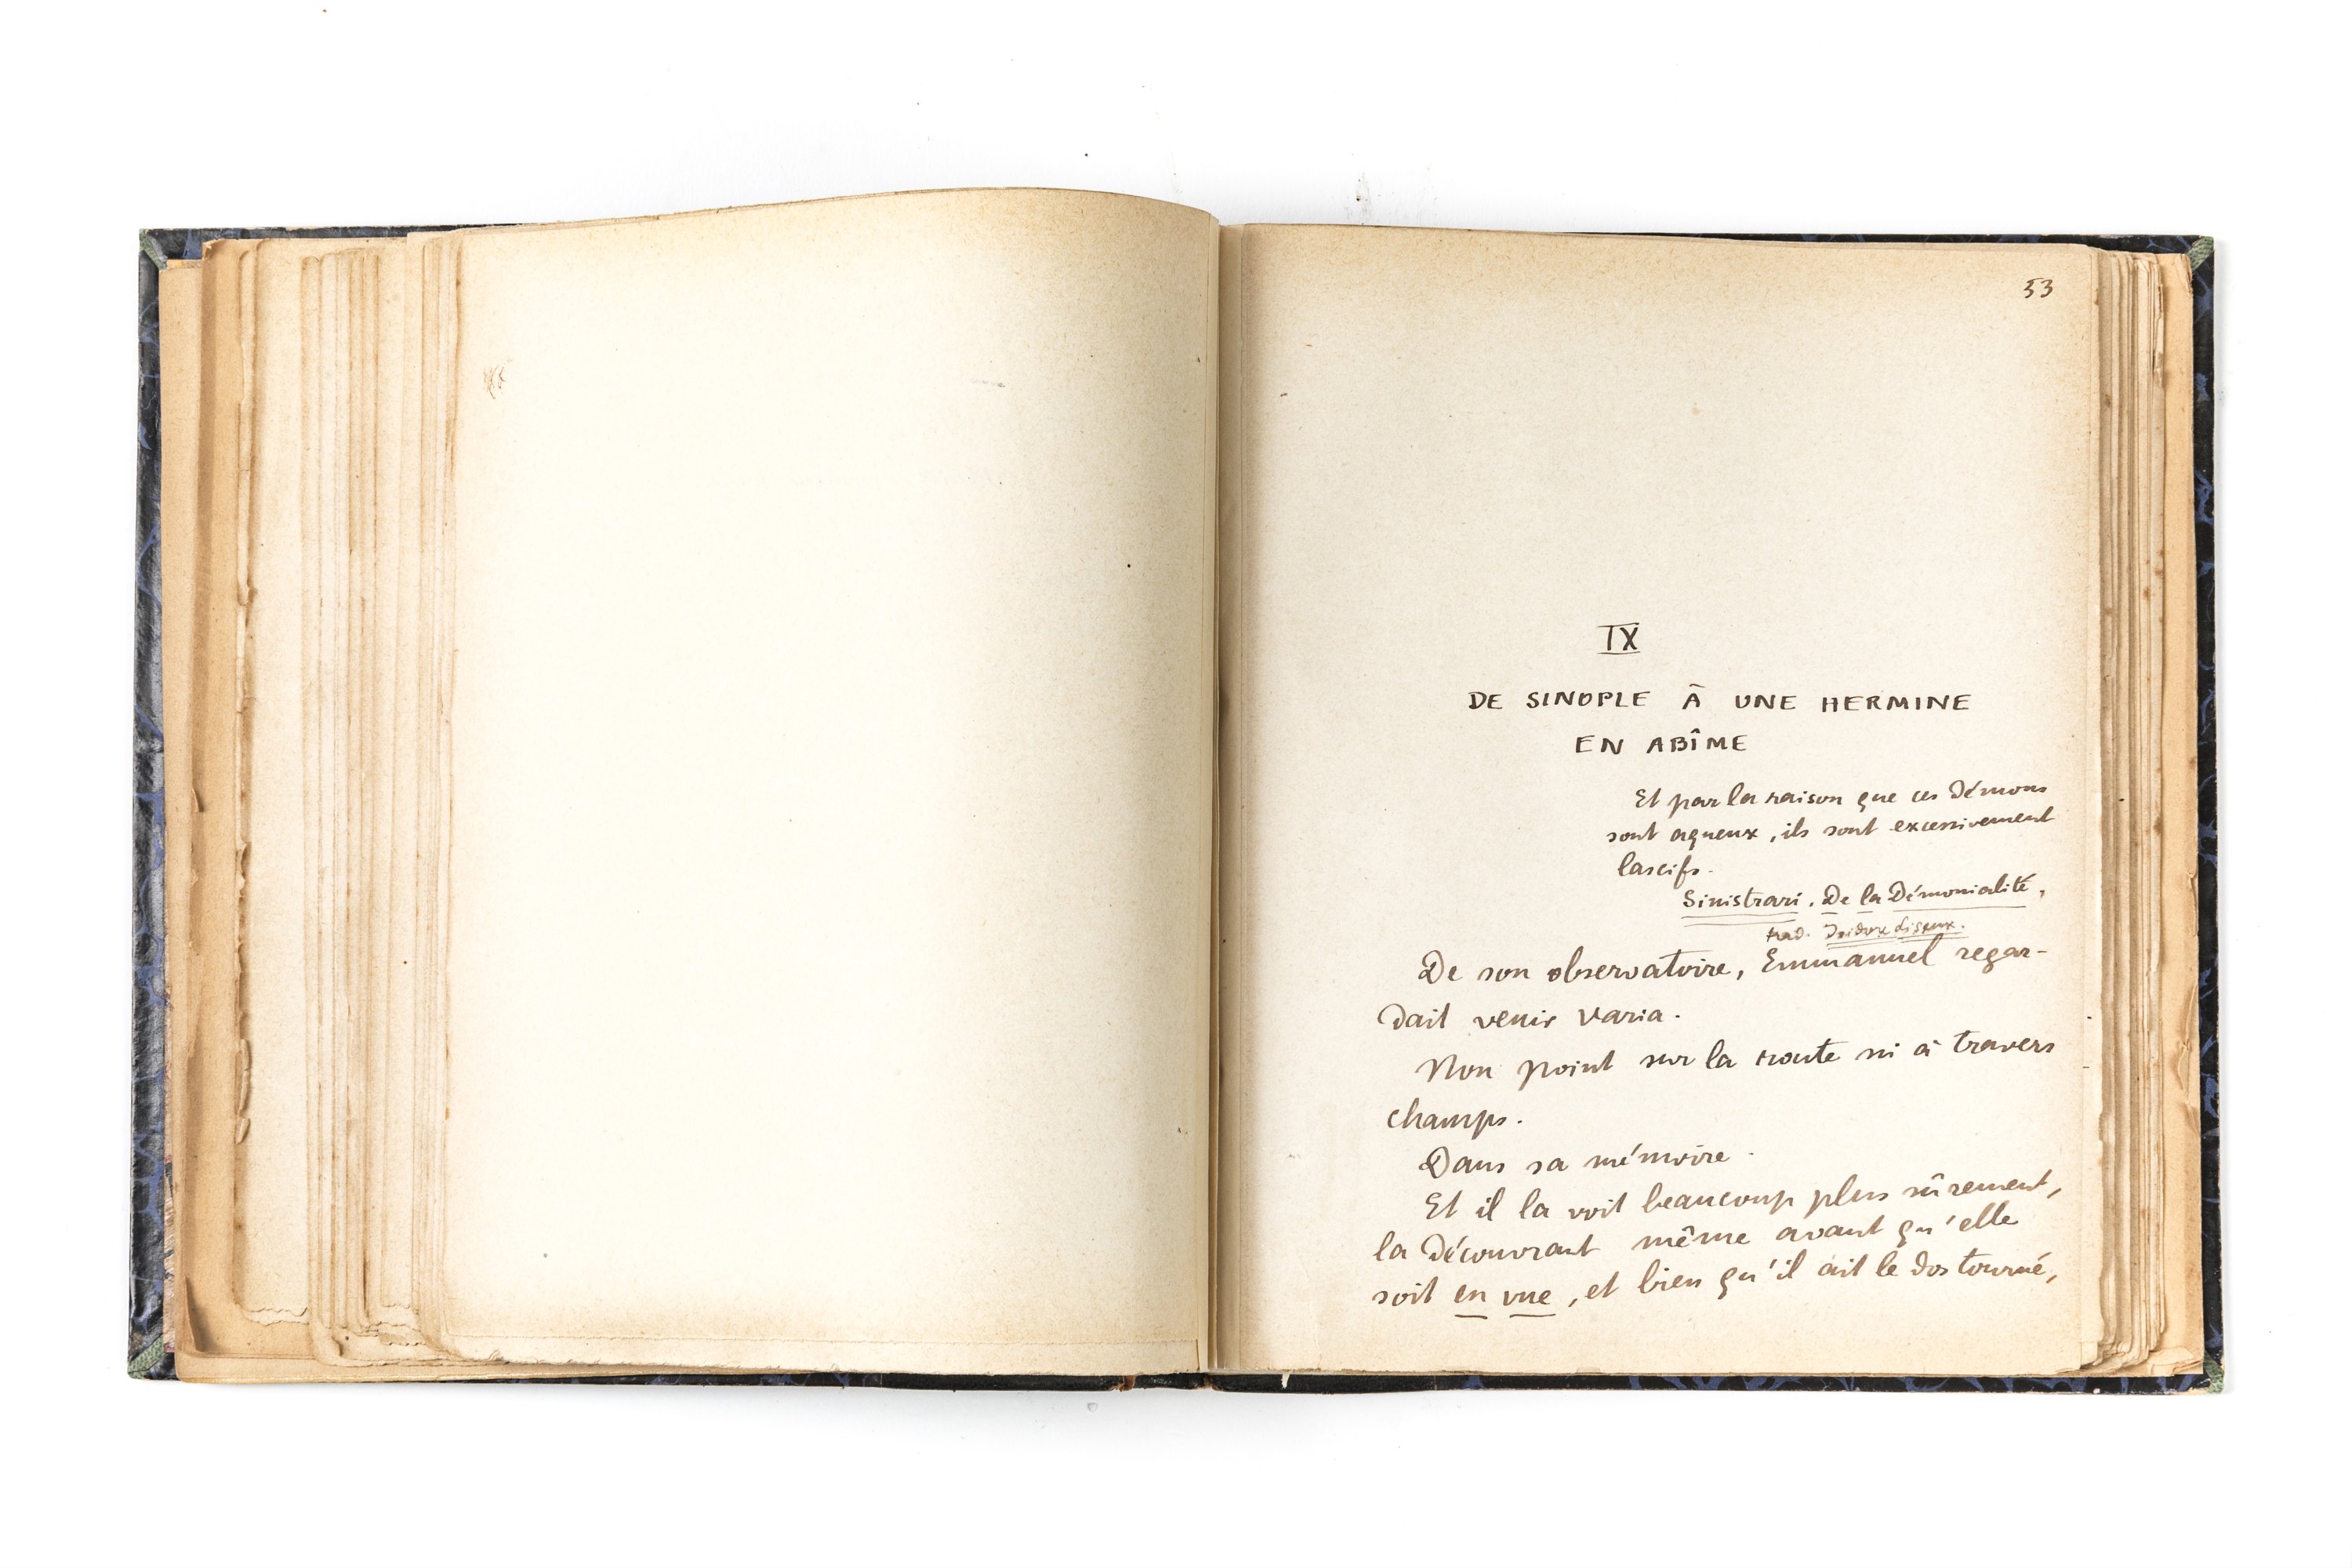 53
IX
DE SINOPLE À UNE HERMINE
EN ABÎME
Et par la raison que ces démons
sont aqueux, ils sont excessivement
lascifs.
Sinistrari. De la Démonialité,
trad. Isidore Liseux.
De son observatoire, Emmanuel regar-
dait venir Varia.
Non point sur la route ni à travers
champs.
Dans sa mémoire.
Et il la voit beaucoup plus sûrement,
la découvrant même avant qu'elle
soit en vue, et bien qu'il ait le dos tourné,